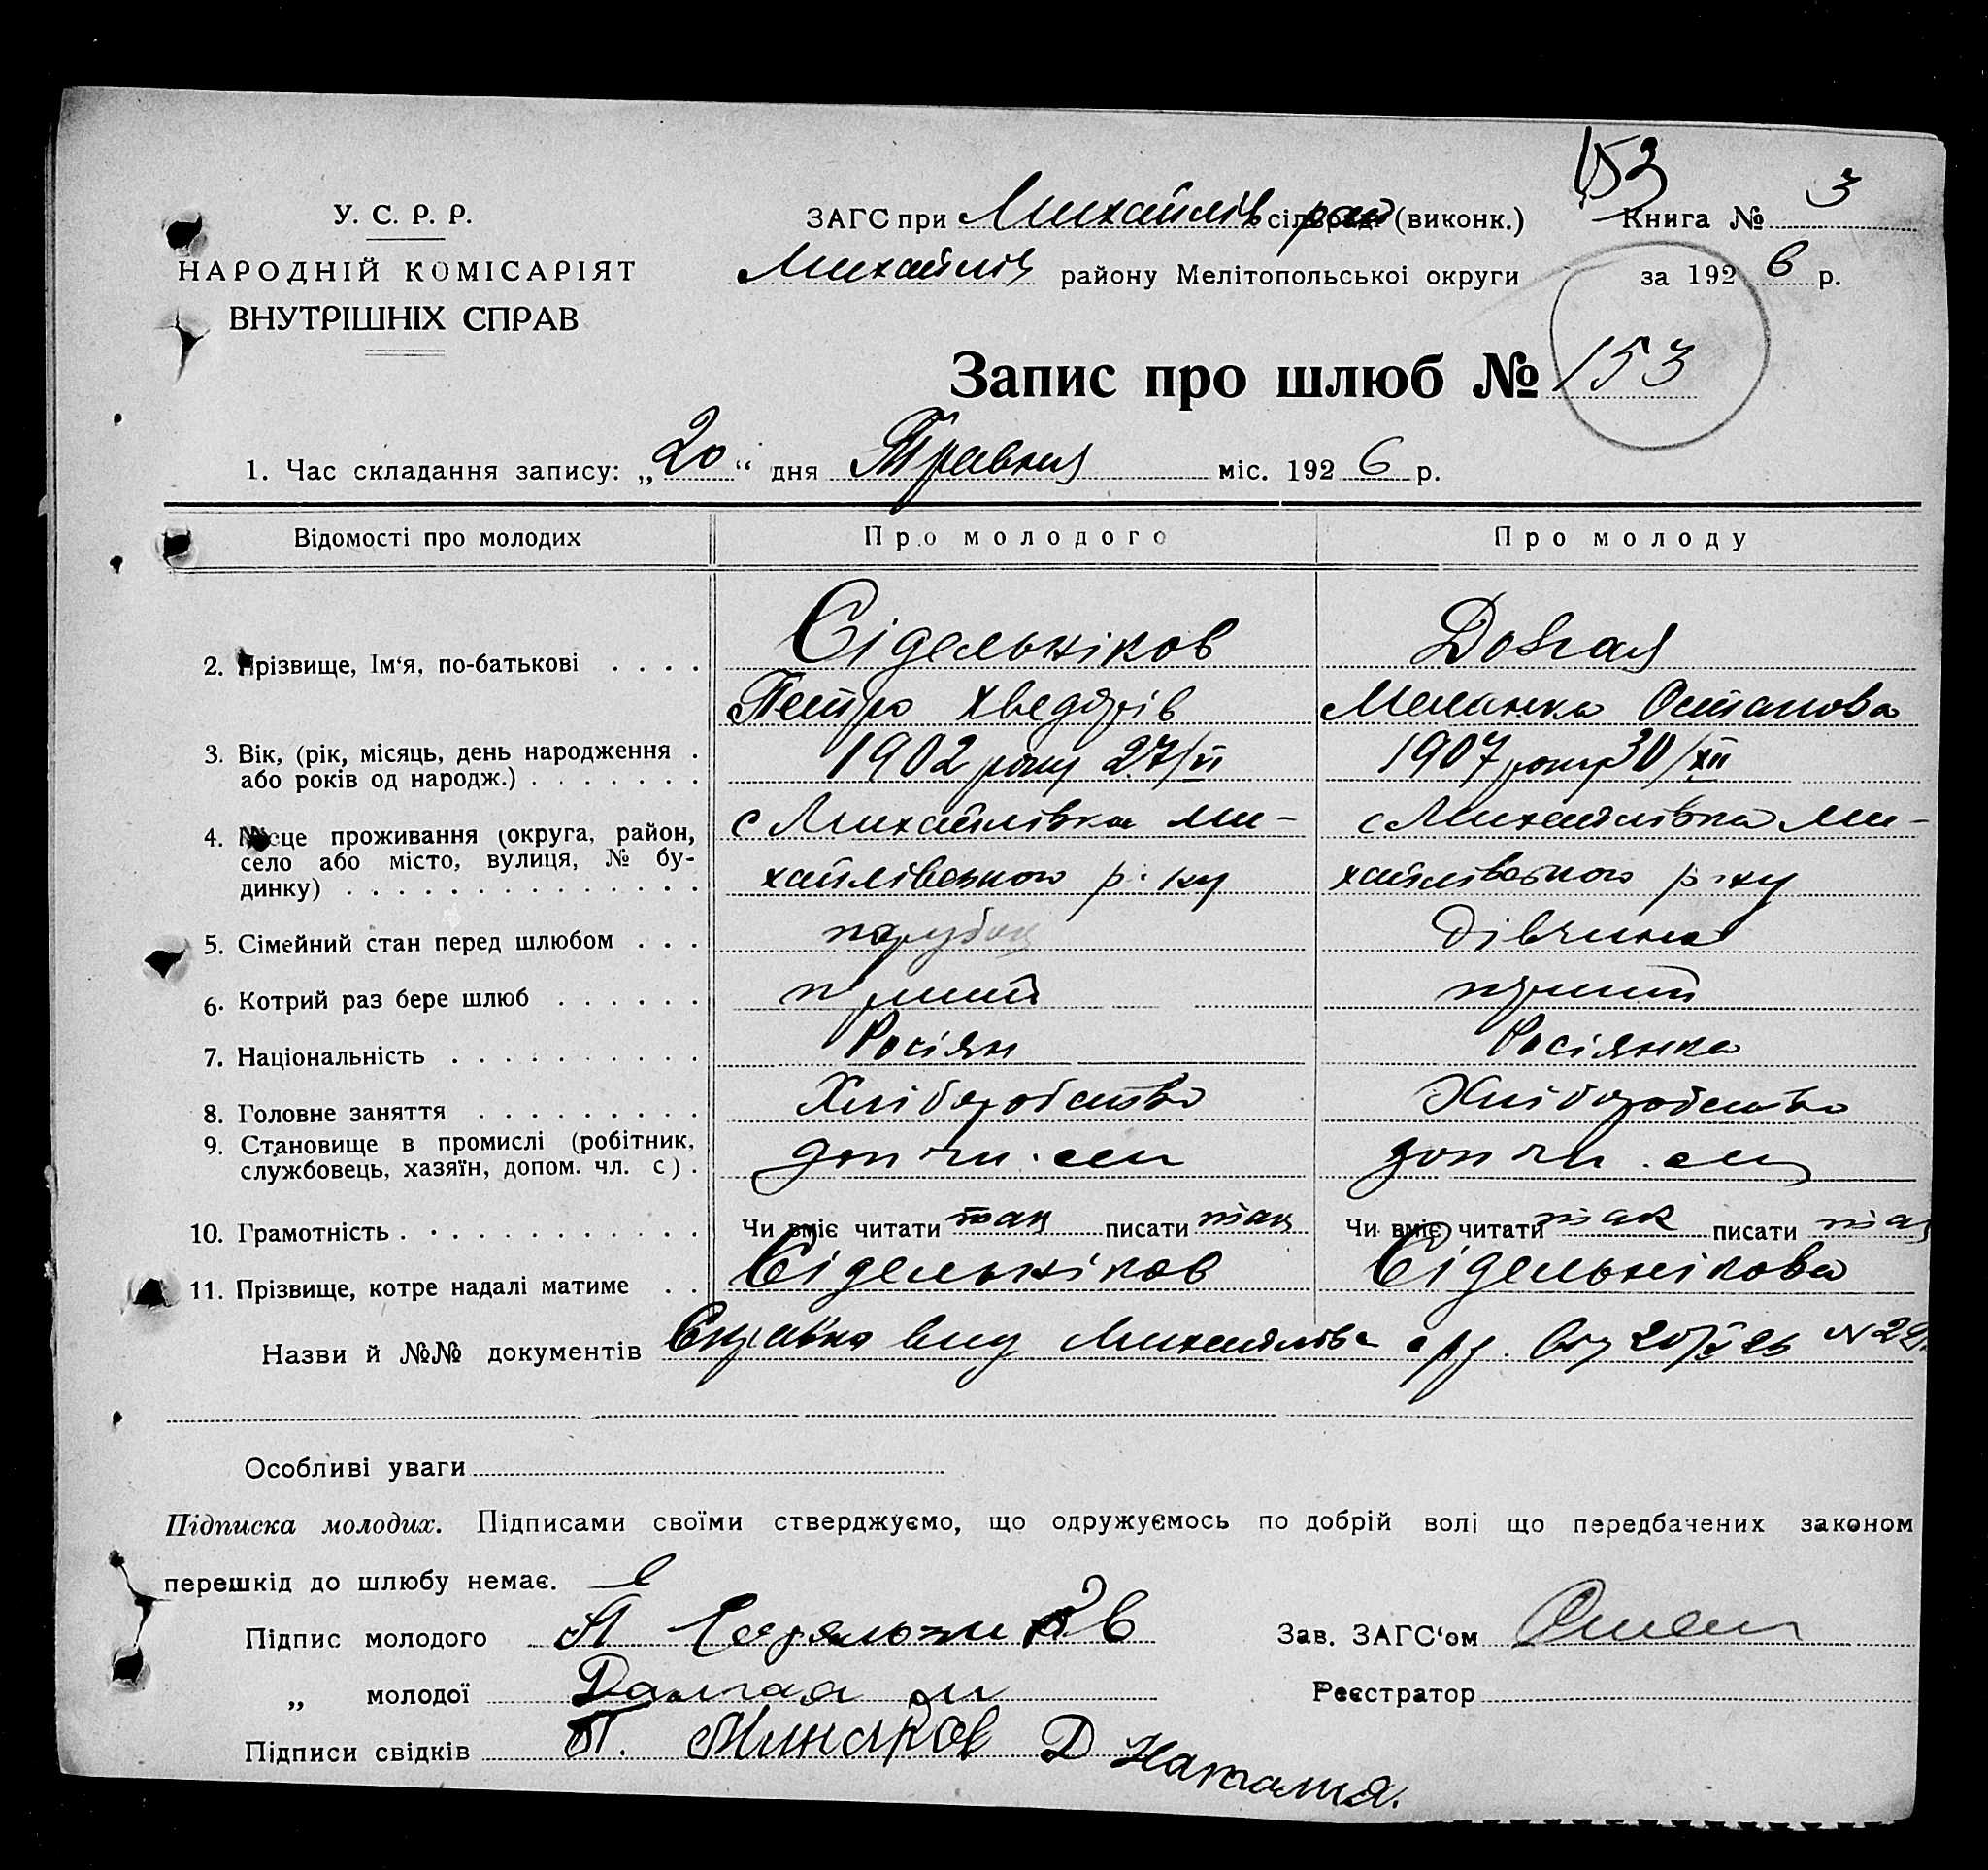 153
У. С. Р. Р.
НАРОДНІЙ КОМІСАРІЯТ
ВНУТРІШНІХ СПРАВ
ЗАГС при Михайлів рай (виконк.) Книга № 3
Михайлів району Мелітопольської округи за 1926 р.
Запис про шлюб № 153
1. Час складання запису: „20“ дня Травня міс. 1926 р.
Відомості про молодих Про молодого Про молоду
2. Прізвище, Ім‘я, по-батькові . . . . Сідельніков Довгая
Петро Хведорів Меланка Остапова
3. Вік, (рік, місяць, день народження . 1902 року 27/VI 1907 року 30/XII
або років од народж.) . . . . . . .
4. Місце проживання (округа, район, с Михайлівка Ми- с Михайлівка Ми-
село або місто, вулиця, № бу-
динку) . . . . . . . . . . . . . . хайлівського р-ну хайлівського р-ну
5. Сімейний стан перед шлюбом . . . парубок дівчина
6. Котрий раз бере шлюб . . . . . . перший перший
7. Національність . . . . . . . . . . Росіян Росіянка
8. Головне заняття . . . . . . . . . Хліборобство Хліборобство
9. Становище в промислі (робітник, доп чл. сем доп чл. сем
службовець, хазяїн, допом. чл. с) .
10. Грамотність . . . . . . . . . . . . Чи вміє читати так писати так Чи вміє читати так писати так
11. Прізвище, котре надалі матиме . . Сідельніков Сідельнікова
Назви й №№ документів Справка вид Михайлівс с/р. від 20/V 26 N
Особливі уваги
Підписка молодих. Підписами своїми стверджуємо, що одружуємось по добрій волі що передбачених законом
перешкід до шлюбу немає.
Підпис молодого П Зав. ЗАГС‘ом
„ молодої Далгая м Реєстратор
Підписи свідків П. Минаров Д Наталия.